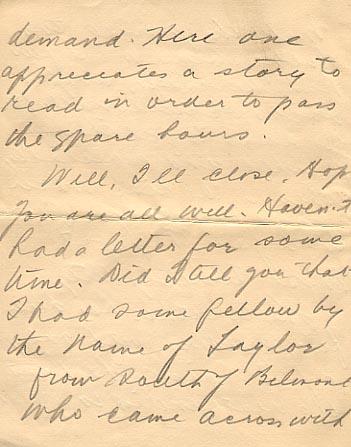 demand. Here one
appreciates a story to
read in order to pass
the spare hours.
Will, I'll close. Hop
you are all well. Haven't
had a letter for some
time. Did I tell you that
I had some fellow by
the name of Taylor
from South of Belmont
who came across with